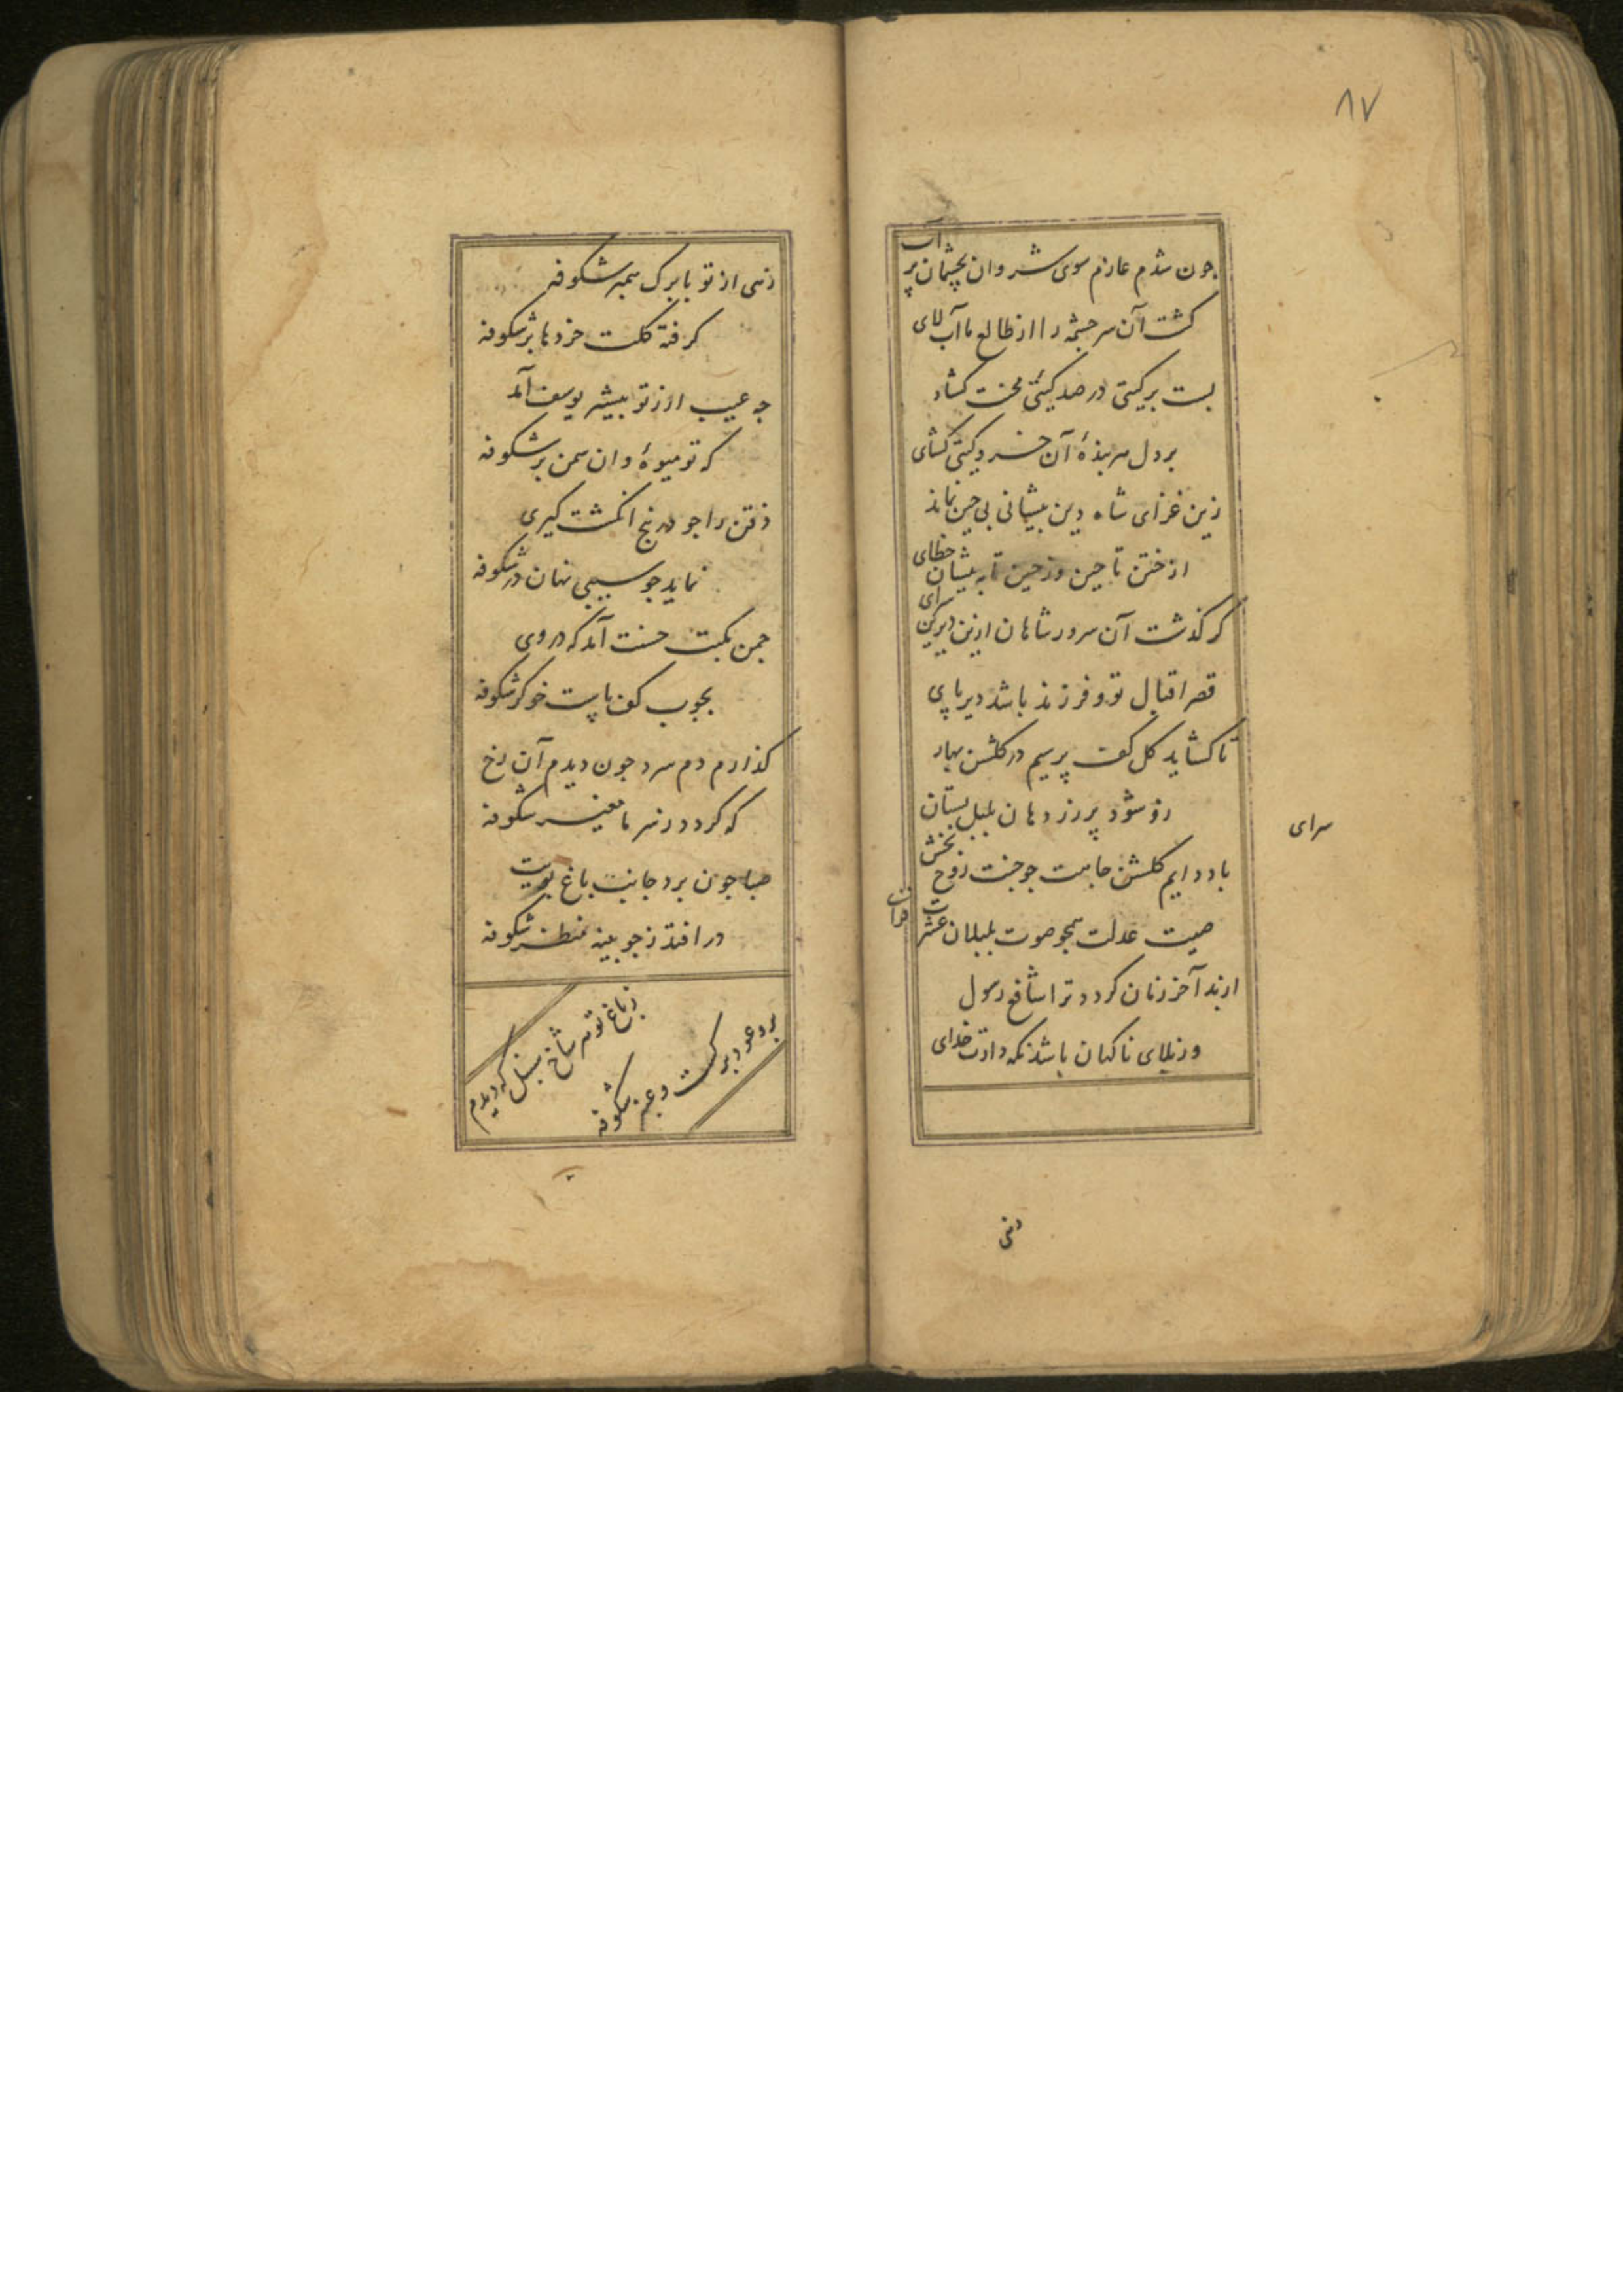 ۸۷
جون شدم عازم سوی شروان بچشمان پر آب
کشت آن سر جشمه را از طالع ما آب لای
بست بر کیتی در صد کیتی محنت کشاد
بر دل هر بندۀ آن خسرو کیتی کشای
زین غزای شاه دین پیشانی بی جین نماند
از ختن تا جین وز جین تا به پیشان خطای
کر کذشت آن سرور شاهان ازین دیرین سرای
قصر اقبال تو و فرزند باشد دیر پای
تا کشاید کل کف پر سیم در کلشن بهار
زو شود پر زر دهان بلبل بستان
سرای
باد دایم کلشن جاهت جو جنت روح بخش
صیت عدلت همجو صوت بلبلان عشرت فزای
ازید آخر زنان کردد ترا شافع رسول
وز بلای ناکهان باشد نکه دارت خدای
زهی
زهی از تو با برک سمبر شکوفه
کرفته کلت خرده ها بر شکوفه
جه عیب ار ز تو بیشتر یوسف آمد
که تو میوۀ و ان سمن بر شکوفه
ذقن را جو در نج انکشت کیری
نماید جو سیبی نهان در شکوفه
جمن بکبت حسنت آمد که در وی
بجوب کف پات خوکر شکوفه
کذارم دم سرد جون دیدم آن رخ
که کردد ز سرما مغیر شکوفه
صبا جون برد جانب باغ بویت
در افتد ز جوبینه منظر شکوفه
ز باغ تو هر شاخ سنبل که دیدم
برو عود برکست و عنبر شکوفه